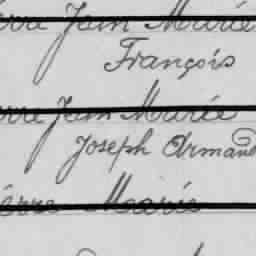 Jean Marie
François
Jean Marie
Joseph Armand
Marie